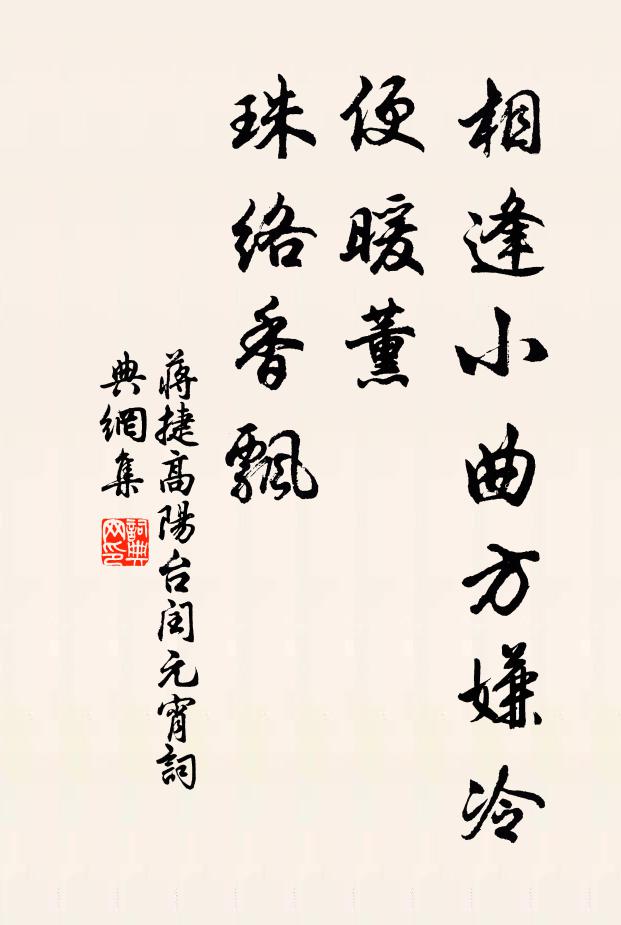 相逢小曲方嫌冷
便暖薰
珠络香飘
蒋捷高陽台闰元宵詞
典網集
詞典网印